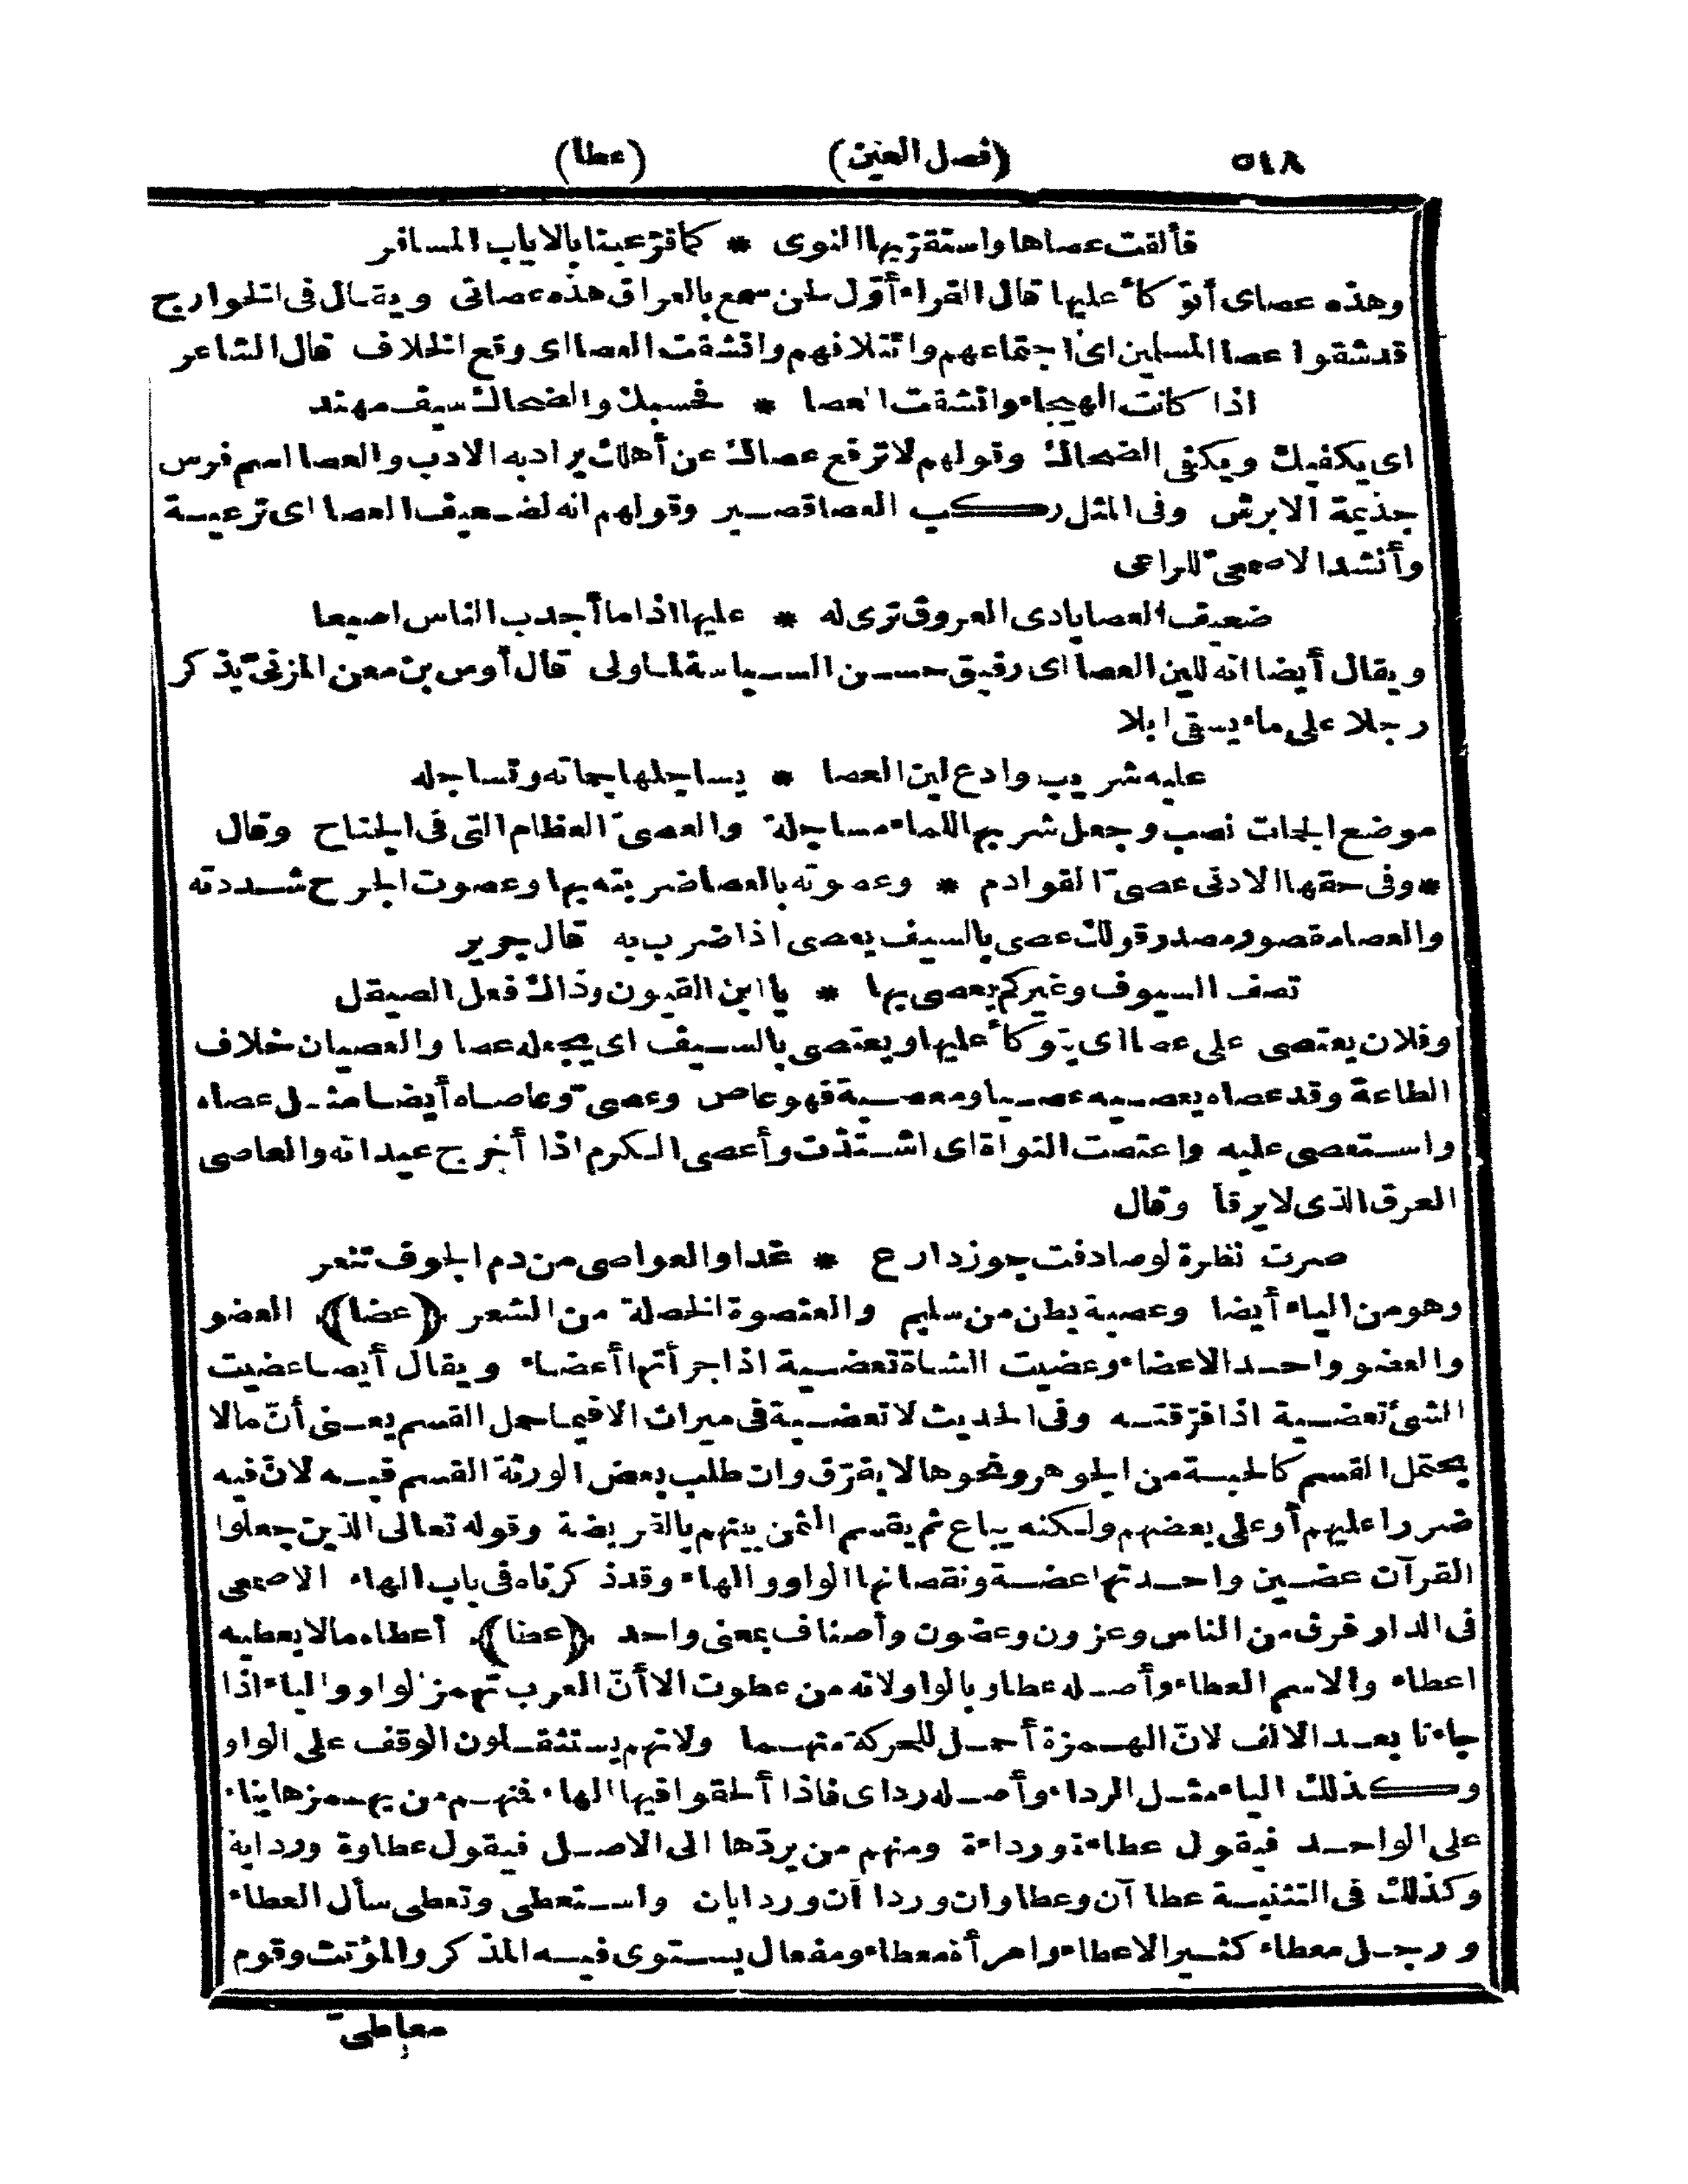 ٥٤٨ (فصل العين) (عطا)
فألقت عصاها واستقرّ بها النوى * كما قرّ عينا بالاياب المسافر
وهذه عصاى أتوكأ عليها قال الفراء أوّل لحن سمع بالعراق هذه عصاتى ويقال فى الخوارج
قد شقوا عصا المسلين اى اجتماعهم وائتلافهم وانشقت العصا اى وقع الخلاف قال الشاعر
اذا كانت الهيجاء وانشقت العصا * فحسبك والضحاك سيف مهند
اى يكفيك ويكفى الضحاك وقولهم لا ترفع عصاك عن أهلك يراد به الادب والعصا اسم فرس
جذيمة الابرش وفى المثل ركب العصا قصير وقولهم انه لضعيف العصا اى ترعية
وأنشد الاصمعىّ للراعى
ضعيف العصا بادى العروق ترى له * عليها اذا ما أجدب الناس اصبعا
ويقال أيضا انه للين العصا اى رفيق حسن السياسة لما ولى قال أوس بن معن المزنىّ يذكر
رجلا على ماء يسقى ابلا
عليه شريب وادع لين العصا * يساجلها جماته وتساجله
موضع الجات نصب وجعل شربها للماء مساجلة والعصىّ العظام التى فى الجناح وقال
* وفى حقها الادنى عصىّ القوادم * وعصوته بالعصا ضربته بها وعصوت الجرح شددته
والعصا مقصور مصدر قولك عصى بالسيف يعصى اذا ضرب به قال جرير
تصف السيوف وغيركم يعصى بها * يا ابن القيون وذاك فعل الصيقل
وفلان يعتصى على عصا اى يتوكأ عليها ويعتصى بالسيف اى يجعله عصا والعصيان خلاف
الطاعة وقد عصاه يعصيه عصيا ومعصية فهو عاص وعصىّ وعاصاه أيضا مثل عصاه
واستعصى عليه واعتصت النواة اى اشتدّت وأعصى الكرم اذا أخرج عيدانه والعاصى
العرق الذى لا يرقأ وقال
صرت نظرة لو صادفت جوز دارع * غدا والعواصى من دم الجوف تنعر
وهو من الياء أيضا وعصية بطن من سليم والعنصوة الخصلة من الشعر ﴿عضا﴾ العضو
والعضو واحد الاعضاء وعضيت الشاة تعضية اذا جزأتها أعضاء ويقال أيضا عضيت
الشئ تعضية اذا فرّقته وفى الحديث لا تعضية فى ميراث الا فيما حمل القسم يعنى أنّ ما لا
يحتمل القسم كالحبسة من الجوهر ونحوها لا يفرّق وان طلب بعض الورثة القسم فيه لانّ فيه
ضررا عليهم أو على بعضهم ولكنه يباع ثم يقسم الثمن بينهم بالفريضة وقوله تعالى الذين جعلوا
القرآن عضين واحدتها عضة ونقصانها الواو والهاء وقد ذكرناه فى باب الهاء الاصمعى
فى الدار فرق من الناس وعزون وعضون وأصناف بمعنى واحد ﴿عطا﴾ أعطاه مالا يعطيه
اعطاء والاسم العطاء وأصله عطاو بالواو لانه من عطوت الا أنّ العرب تهمز الواو والياء اذا
جاءتا بعد الالف لانّ الهمزة أحمل للحركة منهما ولانهم يستثقلون الوقف على الواو
وكذلك الياء مثل الرداء وأصله رداى فاذا ألحقوا فيها الهاء فنهم من يهمزها بناء
على الواحد فيقول عطاءة ورداءة ومنهم من يردّها الى الاصل فيقول عطاوة ورداية
وكذلك فى التثنية عطاآن وعطاوان ورداآن وردايان واستعطى وتعطى سأل العطاء
ورجل معطاء كثير الاعطاء وامرأة معطاء ومفعال يستوى فيه المذكر والمؤنث وقوم
معاطىّ